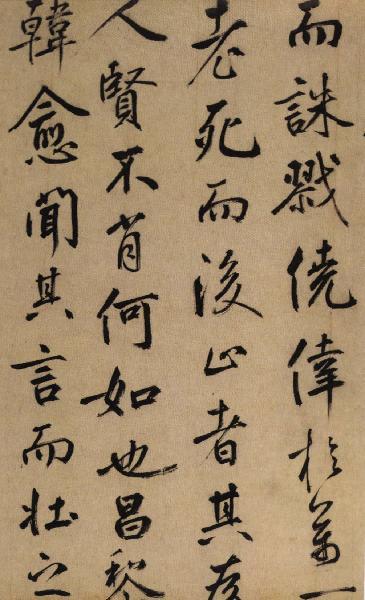 而誅戮僥倖於萬一
老死而後止者其
人賢不肖何如也昌黎
韓愈聞其言而壯之